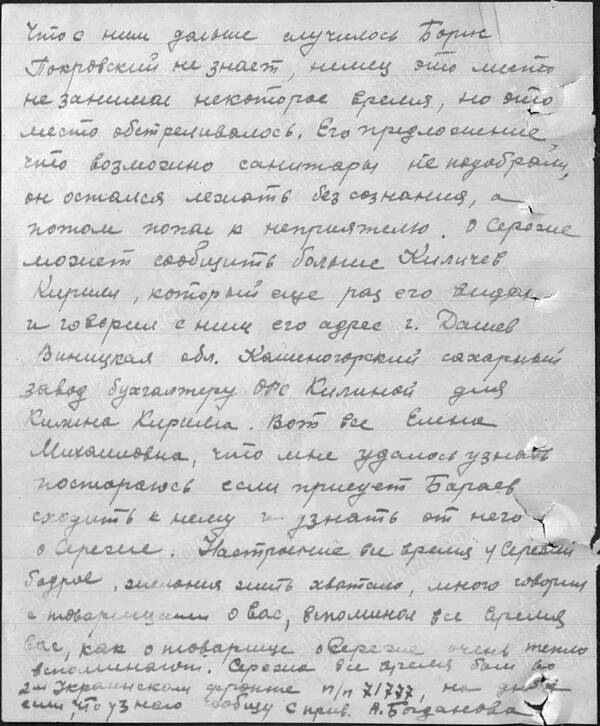 Что с ним дальше случилось Борис
Покровский не знает, немец это место
не занимал некоторое время, но это
место обстреливалось. Его предложение,
что возможно санитары не подобрали,
он остался лежать без сознания, а
потом попал к неприятелю. О Сереже
может сообщить больше Киличев
Кирилл, который еще раз его видел
и говорил с ним его адрес г. Дашев
Виницкая обл. Кашногорский сахарный
завод бухгалтеру ОРС Килиной для
Килина Кирилла. Вот все Елена
Михайловна, что мне удалось узнать
постараюсь если приедет Бараев
сходить к нему и узнать от него
о Сереже. Настроение все время у Сережи
бодрое, желания жить хватало, много говорил
с товарищами о вас, вспоминал все время
вас, как о товарище о Сереже очень тепло
вспоминают. Сережа все время был во
2м Украинском фронте п/п 71777, на днях
если, что узнаю сообщу с прив. А. Богданова